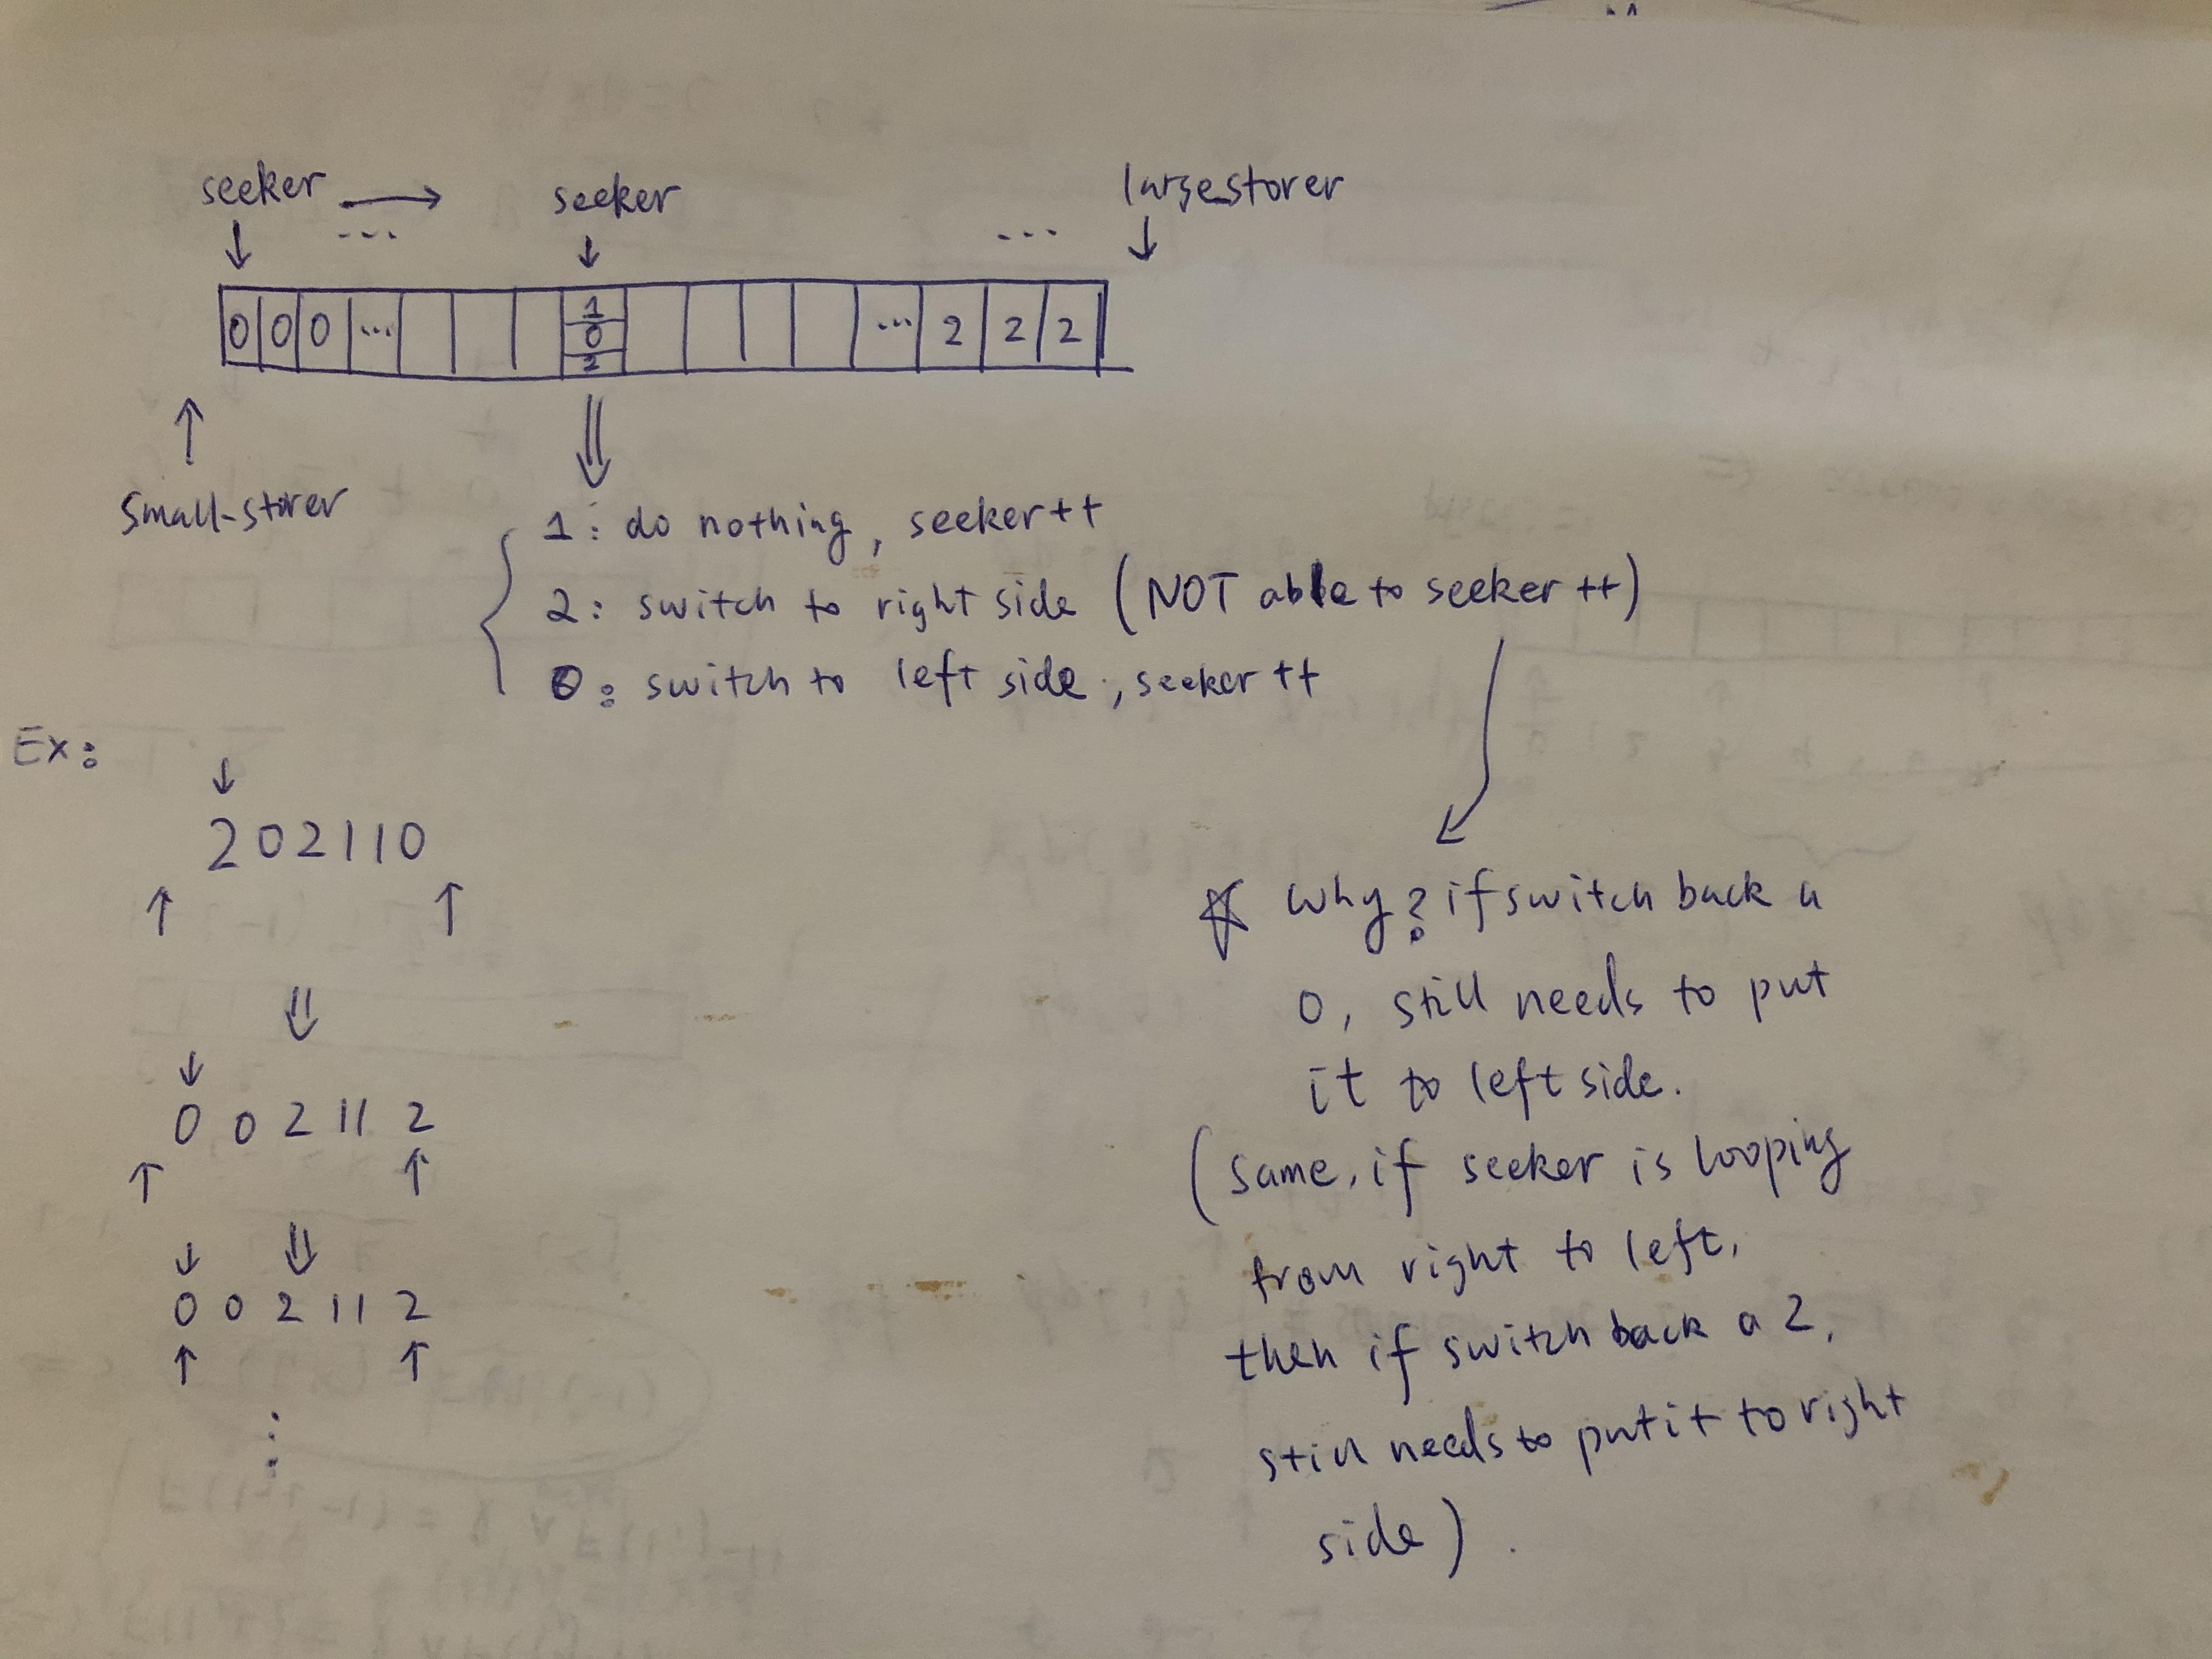 seeker → seeker large_storer
↓ ... ↓ ... ↓
0 0 0 ... 1 0 2 ... 2 2 2
↑
small-storer
1: do nothing, seeker++
2: switch to right side (NOT able to seeker++)
0: switch to left side, seeker++
Ex:
↓
202110
↑ ↑
⇓
↓
0 0 2 11 2
↑ ↑
↓ ⇓
0 0 2 11 2
↑ ↑
⋮
☆ why? if switch back a
0, still needs to put
it to left side.
(same, if seeker is looping
from right to left,
then if switch back a 2,
still needs to put it to right
side).